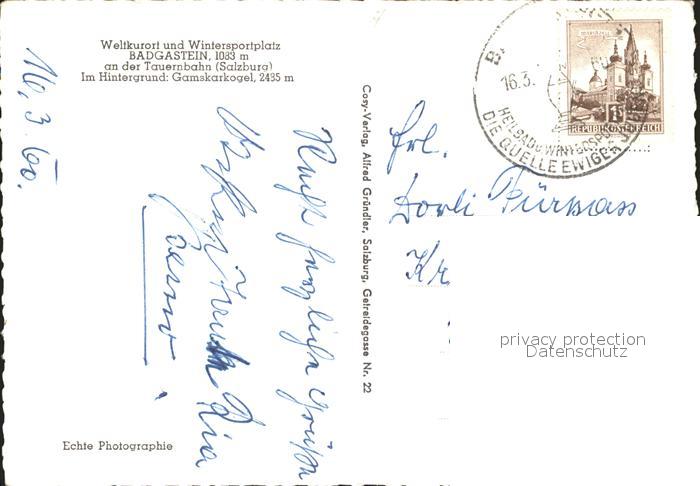 Weltkurort und Wintersportplatz
BADGASTEIN, 1083 m
an der Tauernbahn (Salzburg)
Im Hintergrund: Gamskarkogel, 2435 m
16. 3. 60.
Recht herzliche Grüße
Ria
Echte Photographie
Cosy-Verlag, Alfred Gründler, Salzburg, Getreidegasse Nr. 22
16.3.
HEILBAD u WINTERSPORT
DIE QUELLE EWIGER
MARIAZELL
1S
REPUBLIK ÖSTERREICH
Frl.
Dorli Pürpass
Kr
privacy protection
Datenschutz